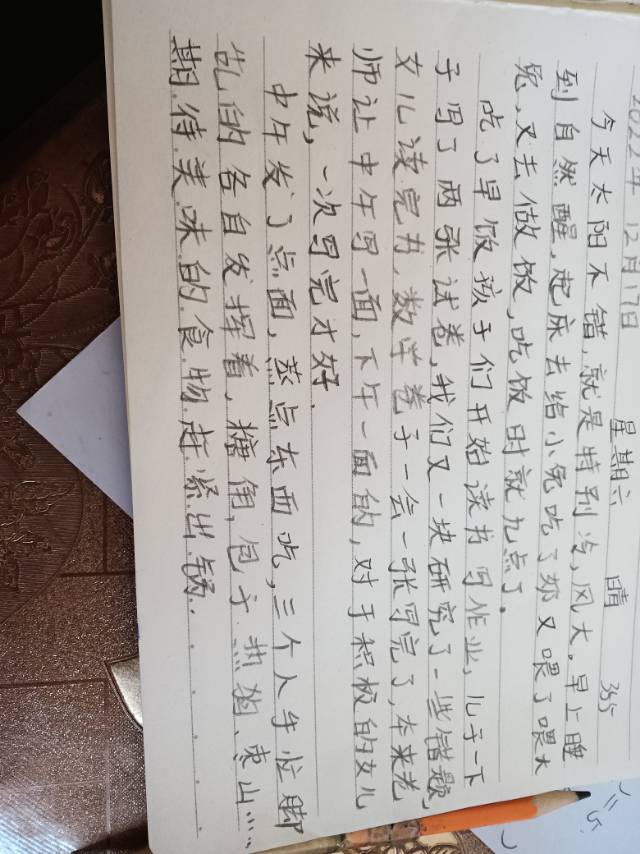 2022年 12月17日 星期六 晴 365
今天太阳不错,就是特别冷,风大。早上睡
到自然醒,起床去给小兔吃了奶又喂了喂大
兔,又去做饭,吃饭时就九点了。
吃了早饭孩子们开始读书写作业,儿子一下
子写了两张试卷,我们又一块研究了一些错题,
女儿读完书,数学卷子一会一张写完了,本来老
师让中午写一面,下午一面的,对于积极的女儿
来说,一次写完才好.
中午发了点面,蒸点东西吃,三个人手忙脚
乱的各自发挥着,糖角,包子.热狗、枣山……
期待美味的食物赶紧出锅......